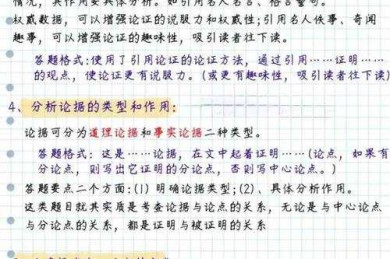 情况，其作用要具体分析。如引用名人名言、格言警句、
权威数据，可以增强论证的说服力和权威性；引用名人佚事、奇闻
趣事，可以增强论证的趣味性，吸引读者往下读。
答题格式:使用了引用论证的论证方法，通过引用……证明……
的观点，使论证更有说服力。(或更有趣味性，吸引读者往下读)
4、分析论据的类型和作用：
论据可分为道理论据和事实论据二种类型。
答题格式：这是……论据，在文中起着证明……(论点，如果有
分论点，则写出它证明的分论点，否则写中心论点)。
答题要点二个方面:(1) 明确论据类型;(2)、具体分析作用。
这类题目就其实质是考查论据与论点的关系，无论是与中心论点
与分论点的关系，都是证明与被证明的关系